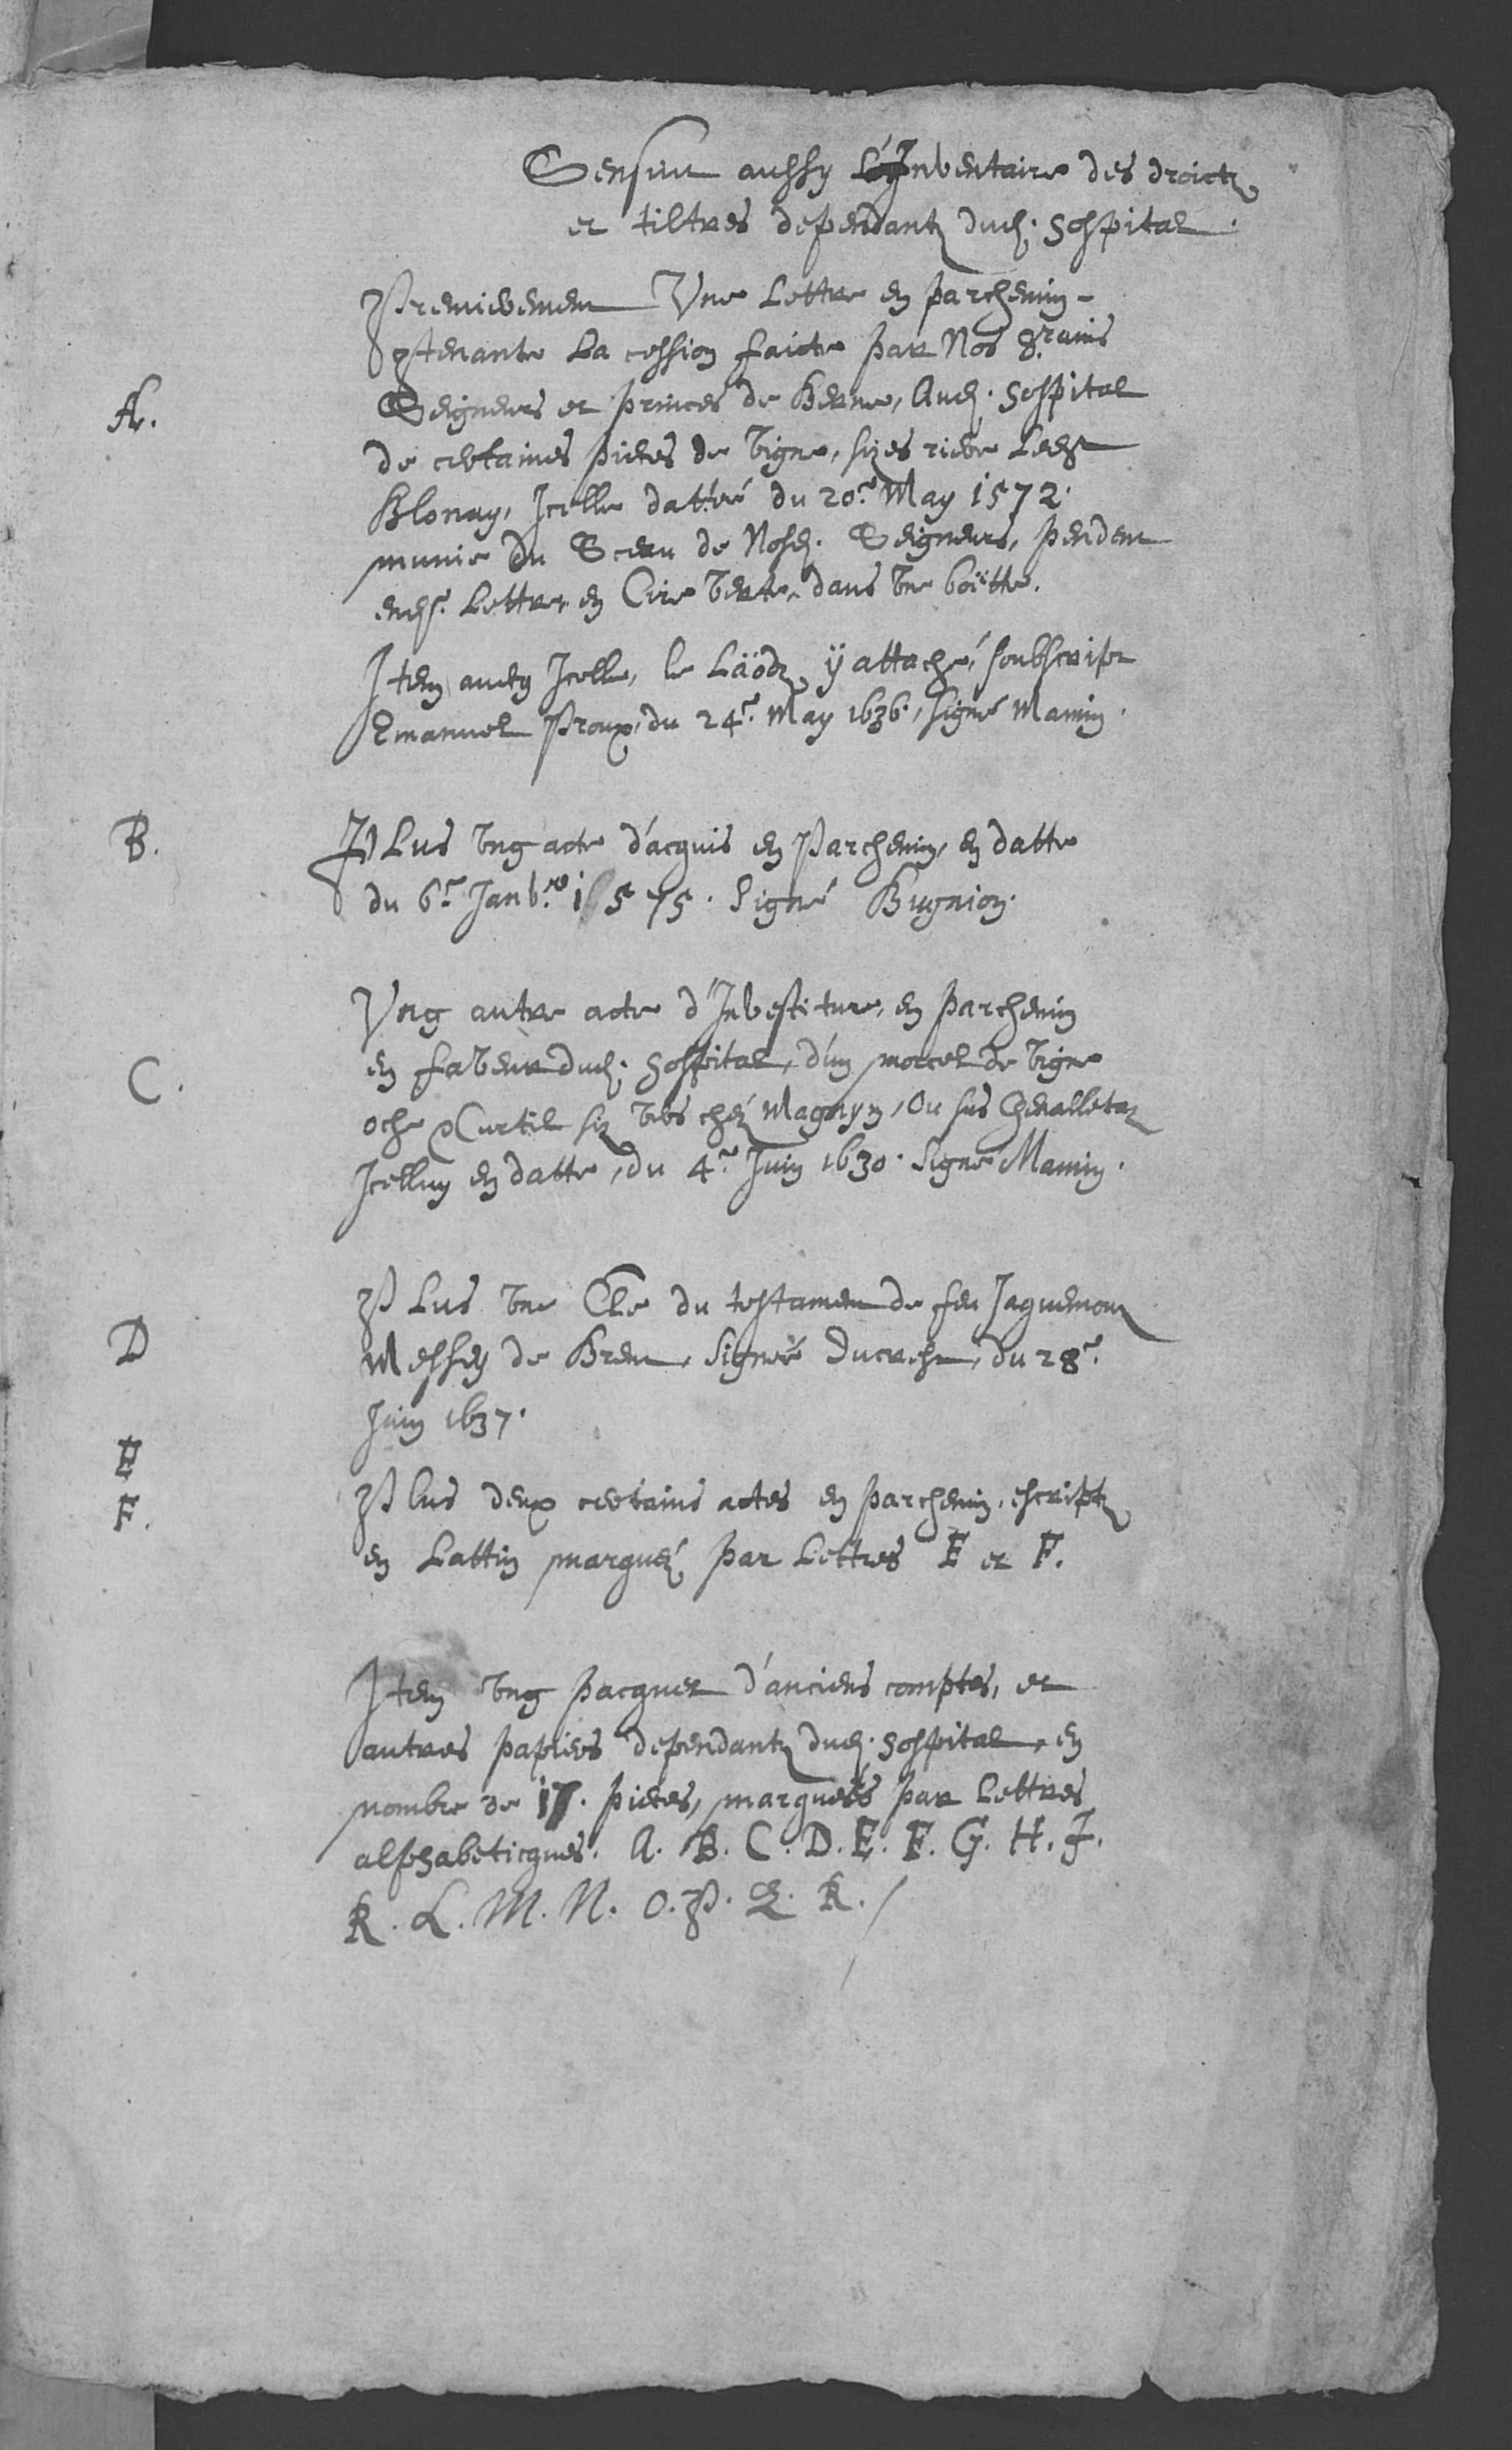 Sensuit aussy L'Inventaire des droictz
et tiltres dependantz dud. hospital.
Premierement Une Lettre en parchemin
contenante La cession faicte par Nos S.rains
A. Seigneurs et princes de Berne, Aud. hospital
de certaines pieces de vigne, sizes riere
Blonay, Icelle dattéé du 20.e May 1572.
munie du Sceau de Nosd. Seigneurs, pendent
en lad. Lettre, en Cire verte, dans une boëtte.
Item avecq Icelle, le Läodz ÿ attaché, soubscript
Emanuel Proux, du 24.e May 1636, signé Mamin.
B. PLus ung acte d'acquis en Parchemin, en datte
du 6.e Janv.er 1575. Signé Bugnion.
Ung autre acte d'Investiture, en parchemin
C. en faveur dud. hospital, d'un morcel de vigne
oche & Curtil siz vers chéz Magnyn, Ou sus
Icelluy en datte, du 4.e Juin 1630. Signé Mamin.
PLus une Cle du testament de feu Jaquemoz
D Messey de Brent, Signéé Ducrest, du 28.e
Juin 1637.
E
F. Plus deux certains actes en parchemin, escriptz
en Lattin marquéz par Lettres E et F.
Item ung pacquet d'anciens comptes, et
autres papiers dependantz dud. hospital, en
nombre de 17. pieces, marquéés par Lettres
alphabeticques. A. B. C. D. E. F. G. H. J.
K. L. M. N. O. P. Q. R. /